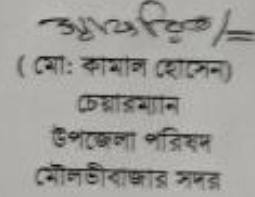 ( মো: কামাল হোসেন)
চেয়ারম্যান
উপজেলা পরিষদ
মৌলভীবাজার সদর